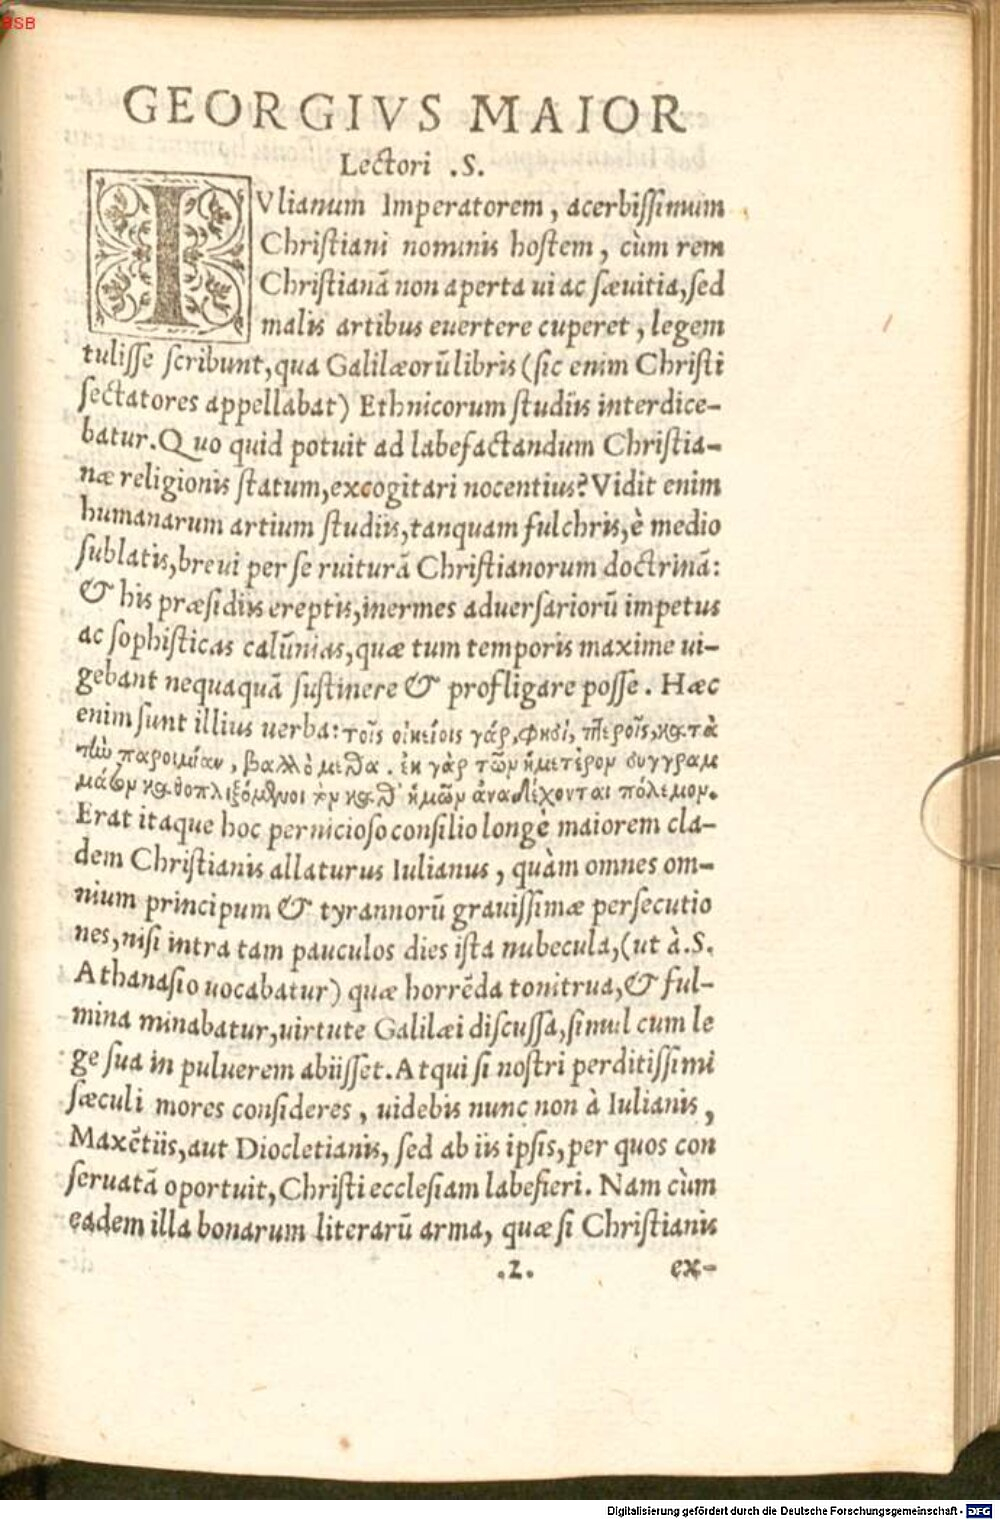 BSB
GEORGIVS MAIOR
Lectori .S.
IVlianum Imperatorem, acerbissimum
Christiani nominis hostem, cùm rem
Christianā non aperta ui ac sæuitia, sed
malis artibus euertere cuperet, legem
tulisse scribunt, qua Galilæorū libris (sic enim Christi
sectatores appellabat) Ethnicorum studiis interdice-
batur. Quo quid potuit ad labefactandum Christia-
næ religionis statum, excogitari nocentius? Vidit enim
humanarum artium studiis, tanquam fulchris, è medio
sublatis, breui per se ruiturā Christianorum doctrinā:
& his præsidiis ereptis, inermes aduersariorū impetus
ac sophisticas calūnias, quæ tum temporis maxime ui-
gebant nequaquā sustinere & profligare posse. Hæc
enim sunt illius uerba: τοῖς οἰκείοις γάρ, φησὶ, πτεροῖς, κατὰ
τὴν παροιμίαν, βαλλόμεθα. ἐκ γὰρ τῶν ἡμετέρων συγγραμ
μάτων καθοπλιζόμενοι τὸν καθ' ἡμῶν ἀναδέχονται πόλεμον.
Erat itaque hoc pernicioso consilio longè maiorem cla-
dem Christianis allaturus Iulianus, quàm omnes om-
nium principum & tyrannorū grauissimæ persecutio
nes, nisi intra tam pauculos dies ista nubecula, (ut à .S.
Athanasio uocabatur) quæ horrēda tonitrua, & ful-
mina minabatur, uirtute Galilæi discussa, simul cum le
ge sua in puluerem abiisset. Atqui si nostri perditissimi
sæculi mores consideres, uidebis nunc non à Iulianis,
Maxētiis, aut Diocletianis, sed ab iis ipsis, per quos con
seruatā oportuit, Christi ecclesiam labefieri. Nam cùm
eadem illa bonarum literarū arma, quæ si Christianis
.2. ex-
Digitalisierung gefördert durch die Deutsche Forschungsgemeinschaft - DFG